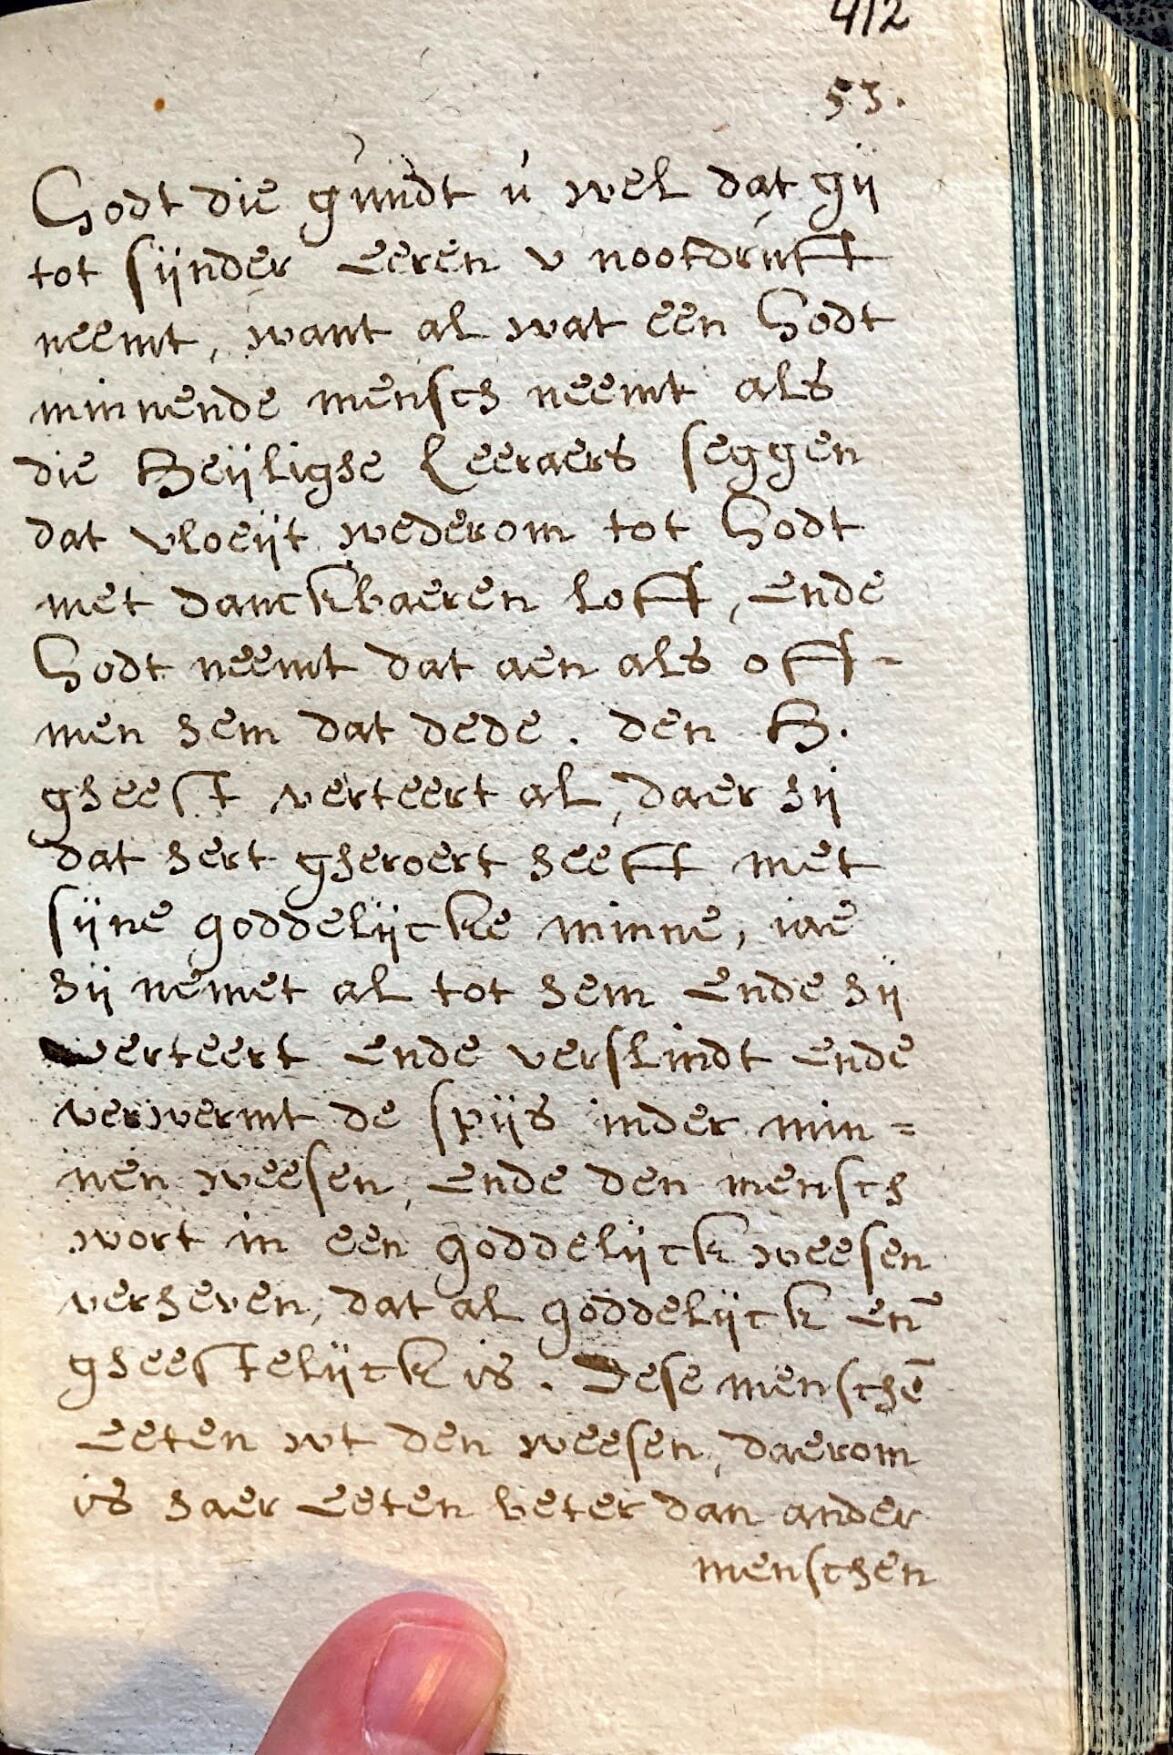 412
53.
Godt die gundt u wel dat gij
tot sijnder Eeren v nootdruft
neemt, want al wat een Godt
minnende mensch neemt als
die Heijlighe Leeraers seggen
dat vloeijt wederom tot Godt
met danckbaeren loff, Ende
Godt neemt dat aen als off-
men hem dat dede. den H.
gheest verteert al, daer hij
dat hert gheroert heeft met
sijne goddelijcke minne, iae
hij nemet al tot hem Ende hij
verteert Ende verslindt Ende
verwermt de spijs inder min=
nen weesen, Ende den mensch
wort in een goddelijck weesen
verheven, dat al goddelijck En̄
gheestelijck is. Dese menschē
Eeten wt den weesen, daerom
is haer Eeten beter dan ander
menschen